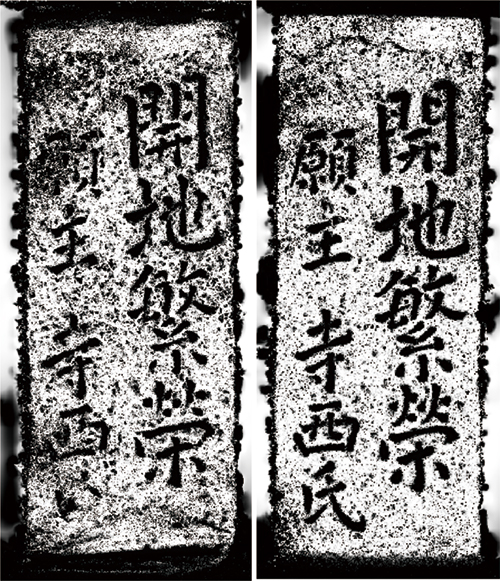 開地繁榮
願主 寺西
開地繁榮
願主 寺西氏